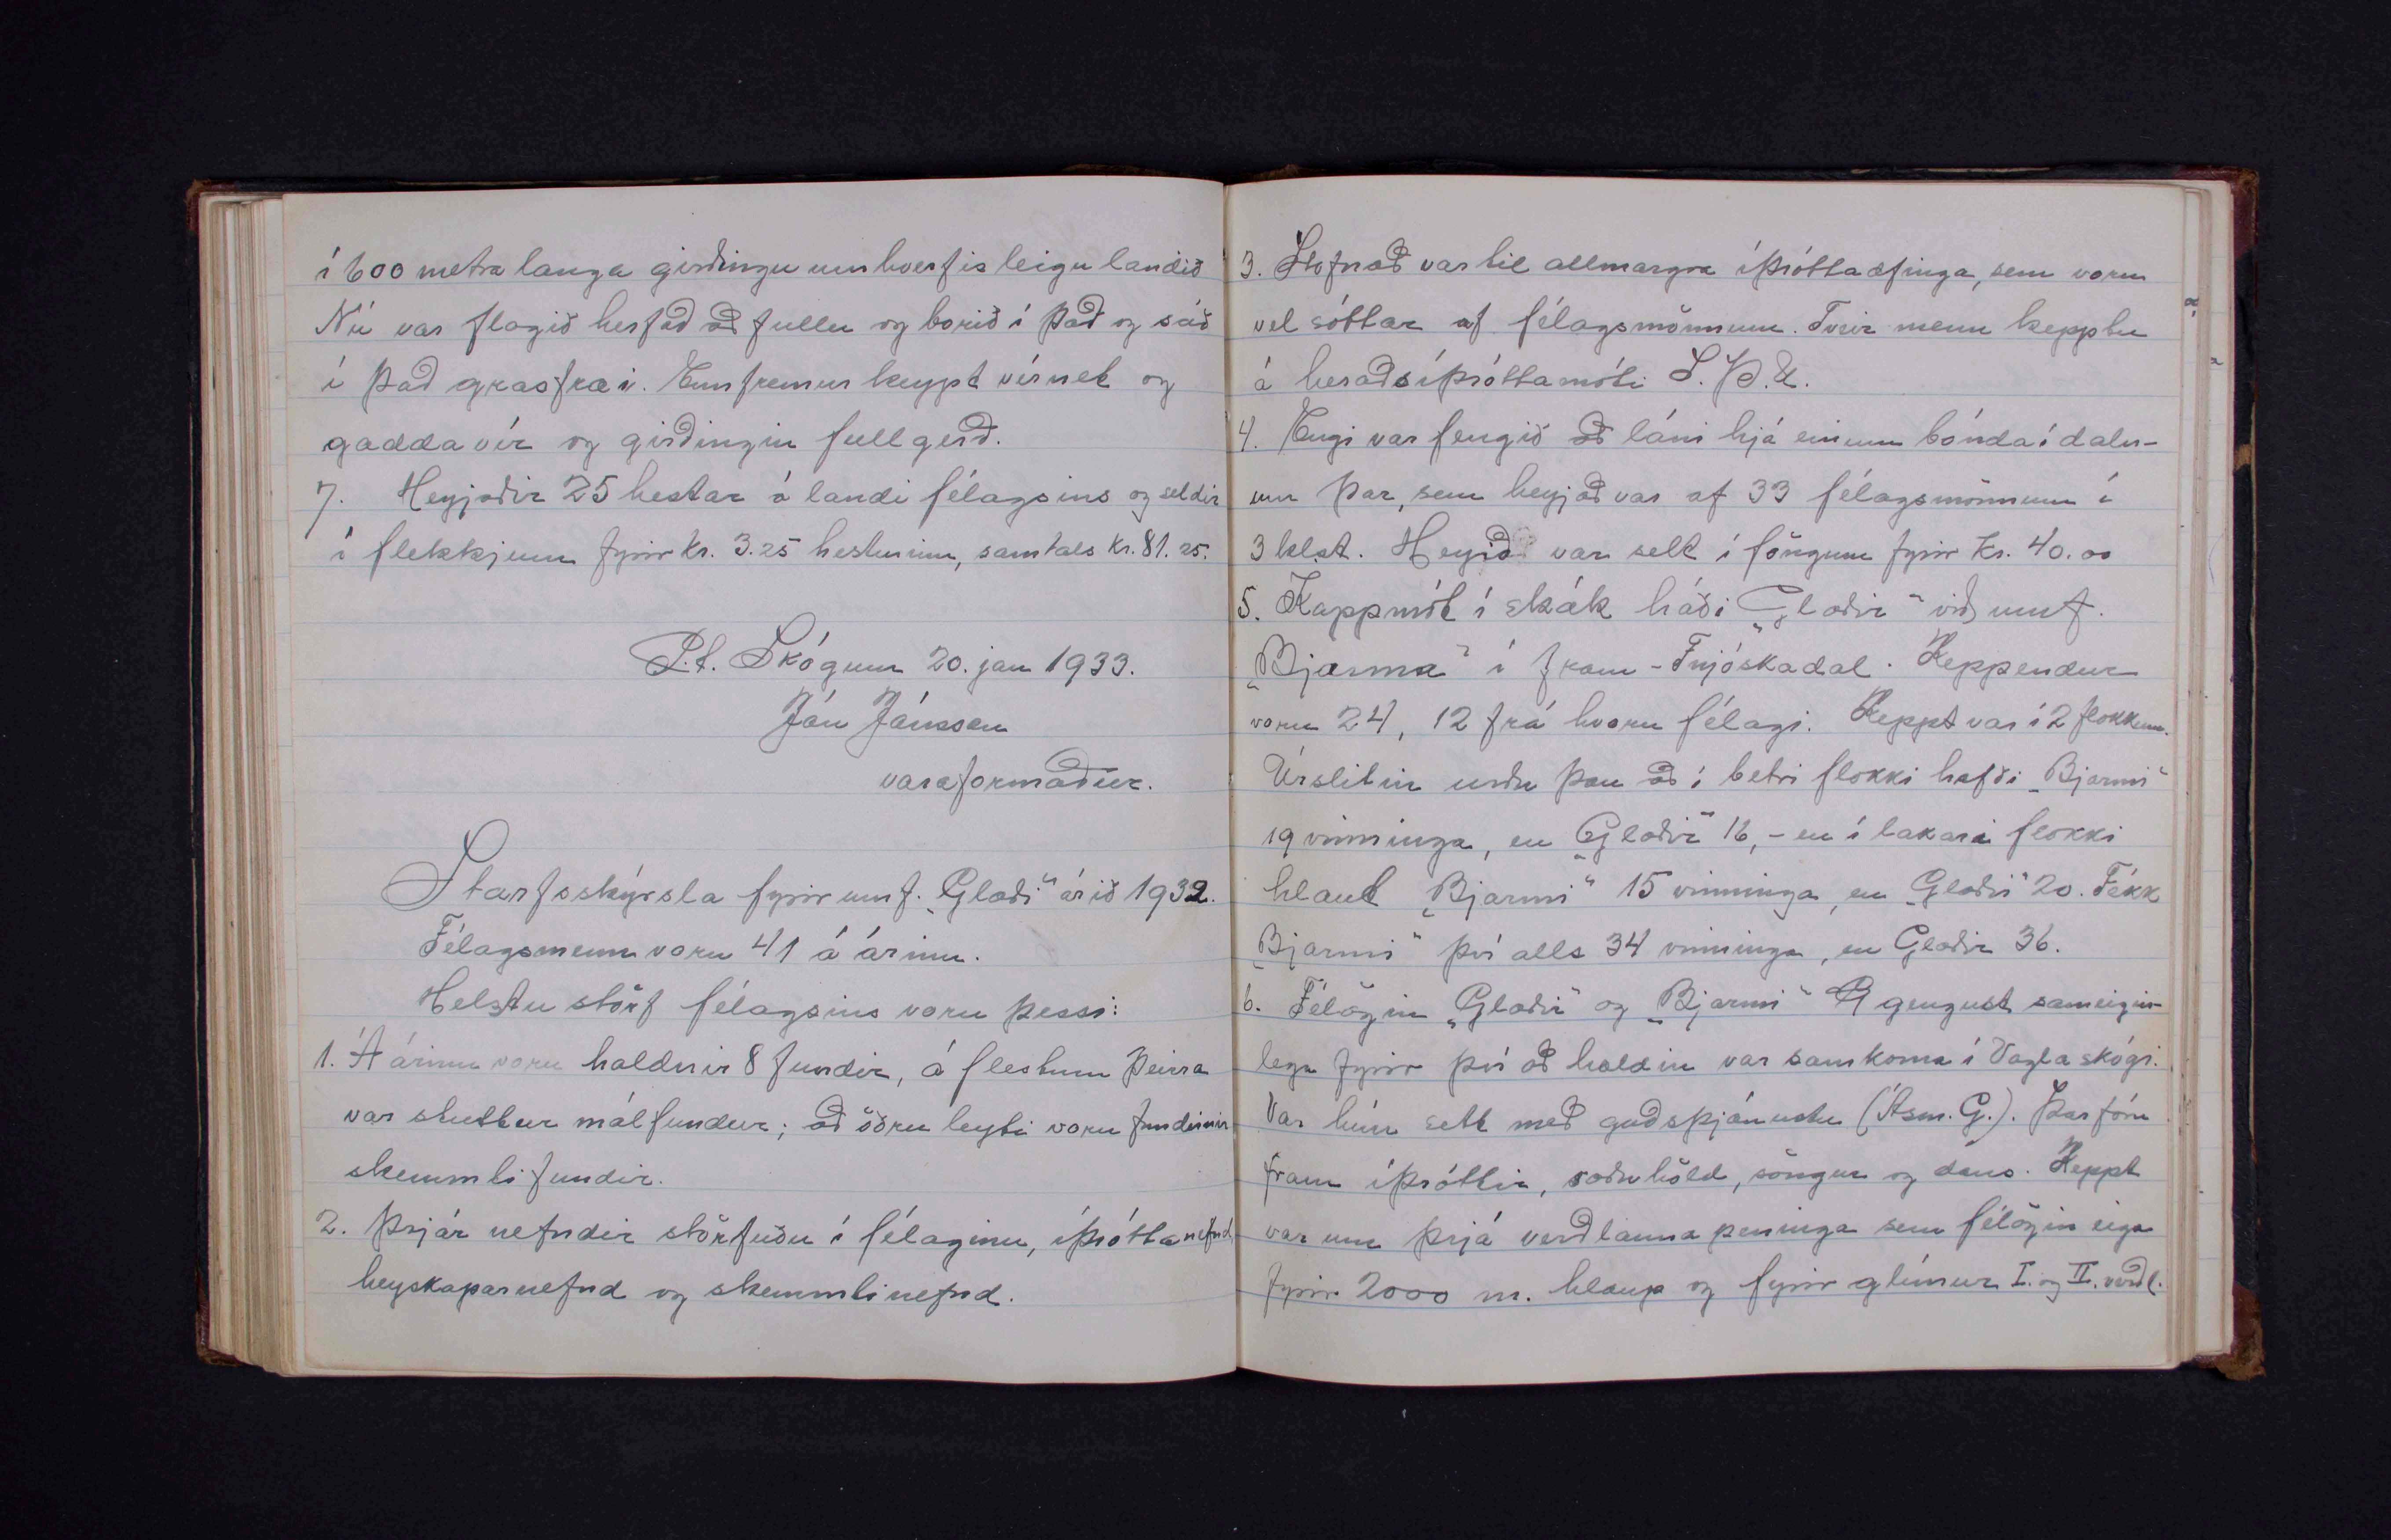 í 600 metra langa girðingu umhverfis leigu landið
Nú var flagið herfað að fullu og borið í það og sáð
í það grasfræi. Ennfremur keypt vírnet og
gaddavír og girðingin fullgerð.
7. Heyjaðir 25 hestar á landi félagsins og seldir
í flekkjum fyrir kr. 3.25 hesturinn, samtals kr. 81.25.
P.t. Skógum 20. jan 1933.
Jón Jónsson
varaformaður.
Starfsskýrsla fyrir umf. „Glæði“ árið 1932.
Félagsmenn voru 41 á árinu.
Helstu störf félagsins voru þessi:
1. Á árinu voru haldnir 8 fundir, á flestum þeirra
var stuttur málfundur; að öðru leyti voru fundirnir
skemmtifundir.
2. Þrjár nefndir störfuðu í félaginu, íþróttanefnd
heyskaparnefnd og skemmtinefnd.
3. Stofnað var til allmargra íþróttaæfinga, sem voru
vel sóttar af félagsmönnum. Tveir menn kepptu
á heraðsíþróttamóti S.Þ.U.
4. Engi var fengið að láni hjá einum bónda í daln-
um þar, sem heyjað var af 33 félagsmönnum í
3 klst. Heyið var selt í föngum fyrir kr. 40.00
5. Kappmót í skák háði „Glæðir“ við umf.
„Bjarma“ í fram-Fnjóskadal. Keppendur
voru 24, 12 frá hvoru félagi. Keppt var í 2 flokkum.
Úrslitin urðu þau að í betri flokki hafði „Bjarmi“
19 vinninga, en „Glæðir“ 16, - en í lakari flokki
hlaut „Bjarmi“ 15 vinninga, en „Glæðir“ 20. Fékk
„Bjarmi“ því alls 34 vinninga, en Glæðir 36.
6. Félögin „Glæðir“ og „Bjarmi“ gengust sameigin-
lega fyrir því að haldin var samkoma í Vaglaskógi.
Var hún sett með guðsþjónustu (Ásm. G.). Þar fóru
fram íþróttir, ræðuhöld, söngur og dans. Keppt
var um þrjá verðlauna peninga sem félögin eiga
fyrir 2000 m. hlaup og fyrir glímur I. og II. verðl.